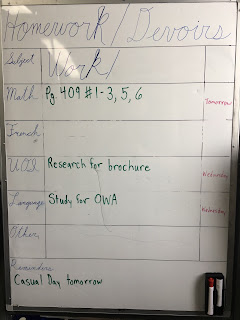 Homework/Devoirs
Subject Work/
Math Pg. 409 #1-3, 5, 6 Tomorrow
French
UOI Research for brochure Wednesday
Language Study for OWA Wednesday
Other
Reminders
Casual Day tomorrow